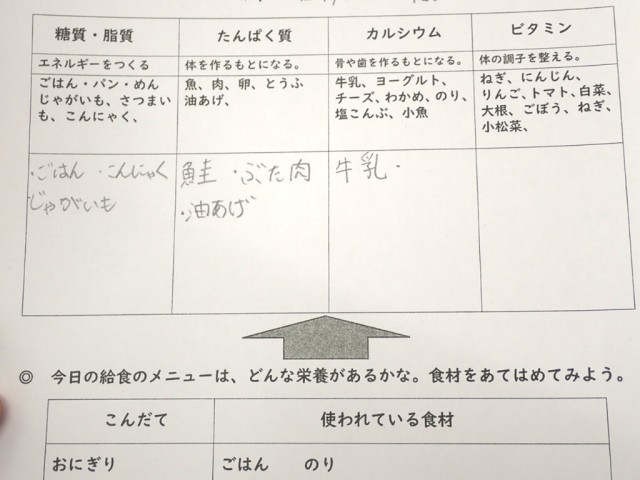 糖質・脂質
たんぱく質
カルシウム
ビタミン
エネルギーをつくる
体を作るもとになる。
骨や歯を作るもとになる。
体の調子を整える。
ごはん・パン・めん
じゃがいも、さつまい
も、こんにゃく、
魚、肉、卵、とうふ
油あげ、
牛乳、ヨーグルト、
チーズ、わかめ、のり、
塩こんぶ、小魚
ねぎ、にんじん、
りんご、トマト、白菜、
大根、ごぼう、ねぎ、
小松菜、
・ごはん ・こんにゃく
じゃがいも
鮭 ・ぶた肉
・油あげ
牛乳・
◎ 今日の給食のメニューは、どんな栄養があるかな。食材をあてはめてみよう。
こんだて
使われている食材
おにぎり
ごはん のり